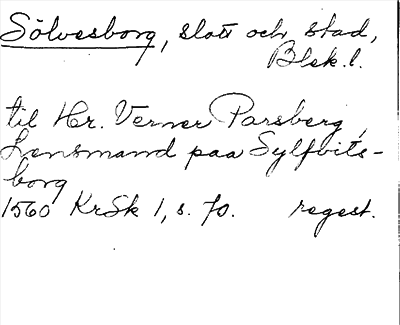 Sölvesborg, slott och stad,
Blek.l.
til Hr. Verner Parsberg,
Lensmand paa Sylfvits-
borg
1560 KrSk 1, s. 70. regest.